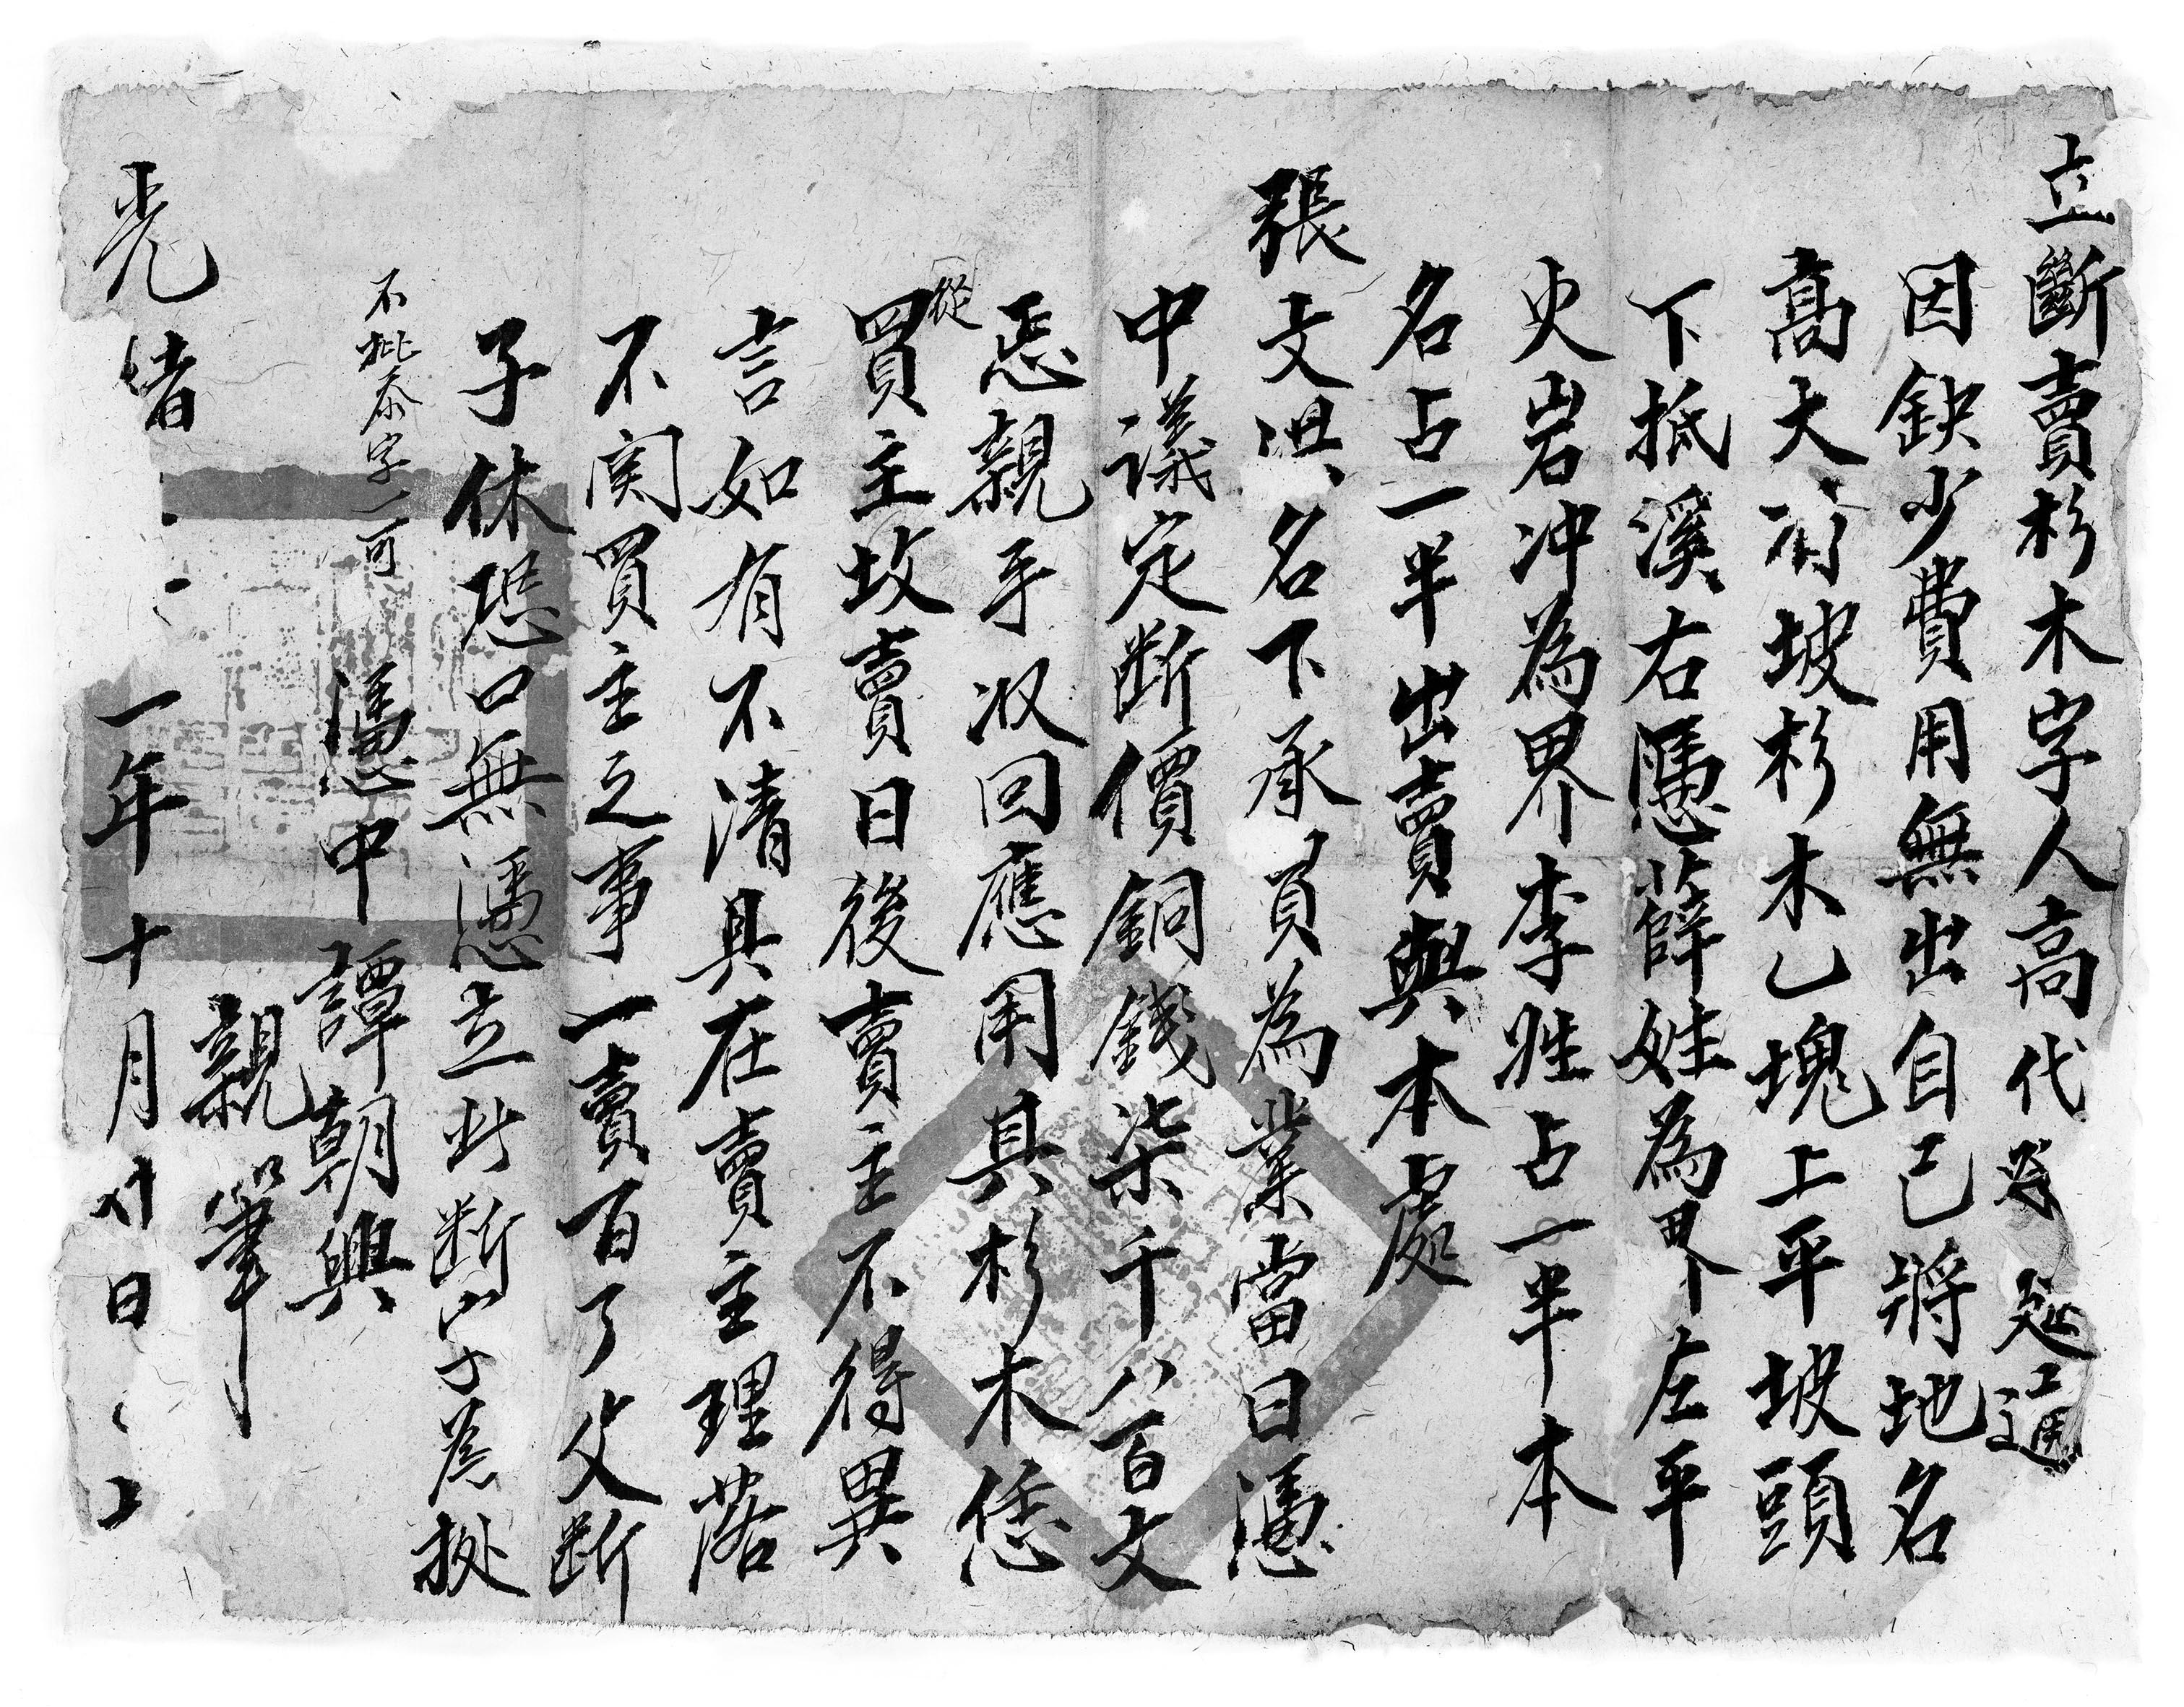 立斷賣杉木字人高代 延
因缺少費用無出自己將地名
高大 坡杉木乙塊上平坡頭
下抵溪右憑薛姓為界左平
火岩冲為界李姓占一半本
名占一半出賣與本處
張文洪名下承買為業當日憑
中議定断價銅錢柒千八百文
恁親手收回應用其杉木恁
從
買主坎賣日後賣主不得異
言如有不清具在賣主理落
不関買主之事一賣百了父断
子休恐口無憑立此断字為挞
不批忝字一可
憑中 譚朝興
親筆
光绪 一年十月廿日